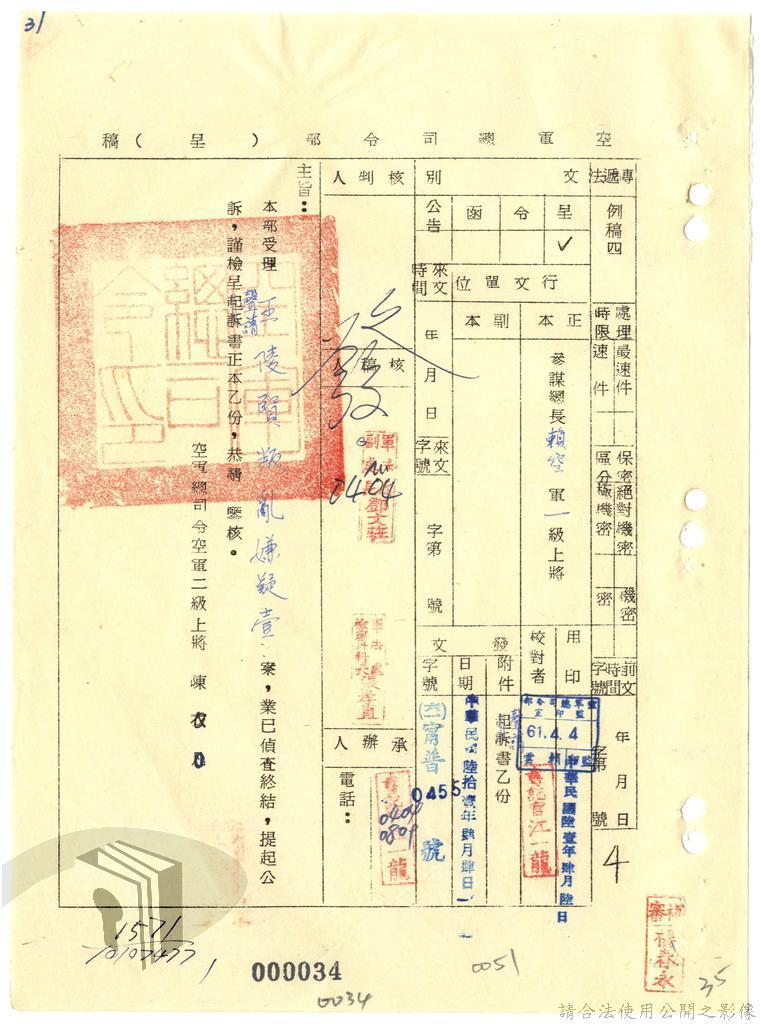 31
空軍總司令部（呈）稿
專遞法
例稿四
文別
呈
令
函
公告
✓
核判人
處理時限
最速件
速件
保密區分
絕對機密
極機密
機密
密
前文
時間
字號
年 月 日
字第 號
4
行文單位
正本
副本
參謀總長賴空軍一級上將
來文時間
年 月 日
來文字號
字第 號
發
核稿人
0404
鄧文莊
用印
校對者
61.4.4
中華民國陸拾壹年肆月陸日
書記官江一龍
發文
附件
聲請
起訴書乙份
日期
中華民國陸拾壹年肆月肆日
字號
(61)甯普
0455
號
承辦人
書記官江一龍
0404
0809
電話：
主旨：
本部受理王陵賢叛亂嫌疑壹案，業已偵查終結，提起公
訴，謹檢呈起訴書正本乙份，恭請 鑒核。
聲請
空軍總司令空軍二級上將 陳
1571
10107477
1
000034
0034
0051
35
請合法使用公開之影像